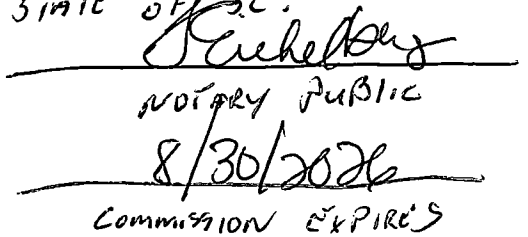 STATE OF S.C.
NOTARY PUBLIC
8/30/2026
COMMISSION EXPIRES